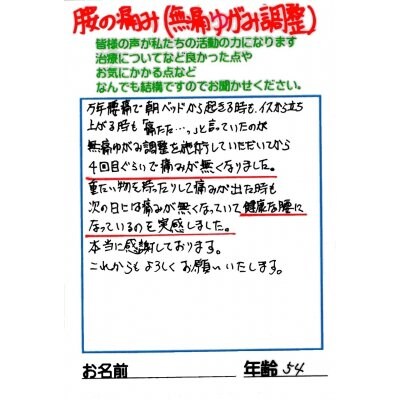 腰の痛み(無痛ゆがみ調整)
皆様の声が私たちの活動の力になります
治療についてなど良かった点や
お気にかかる点など
なんでも結構ですのでお聞かせください。
万年腰痛で朝ベッドから起きる時も、イスから立ち
上がる時も「痛たた…。」と言っていたのが
無痛ゆがみ調整を施術していただいてから
4回目ぐらいで痛みが無くなりました。
重たい物を持ったりして痛みが出た時も
次の日には痛みが無くなっていて健康な腰に
なっているのを実感しました。
本当に感謝しております。
これからもよろしくお願いいたします。
お名前
年齢 54